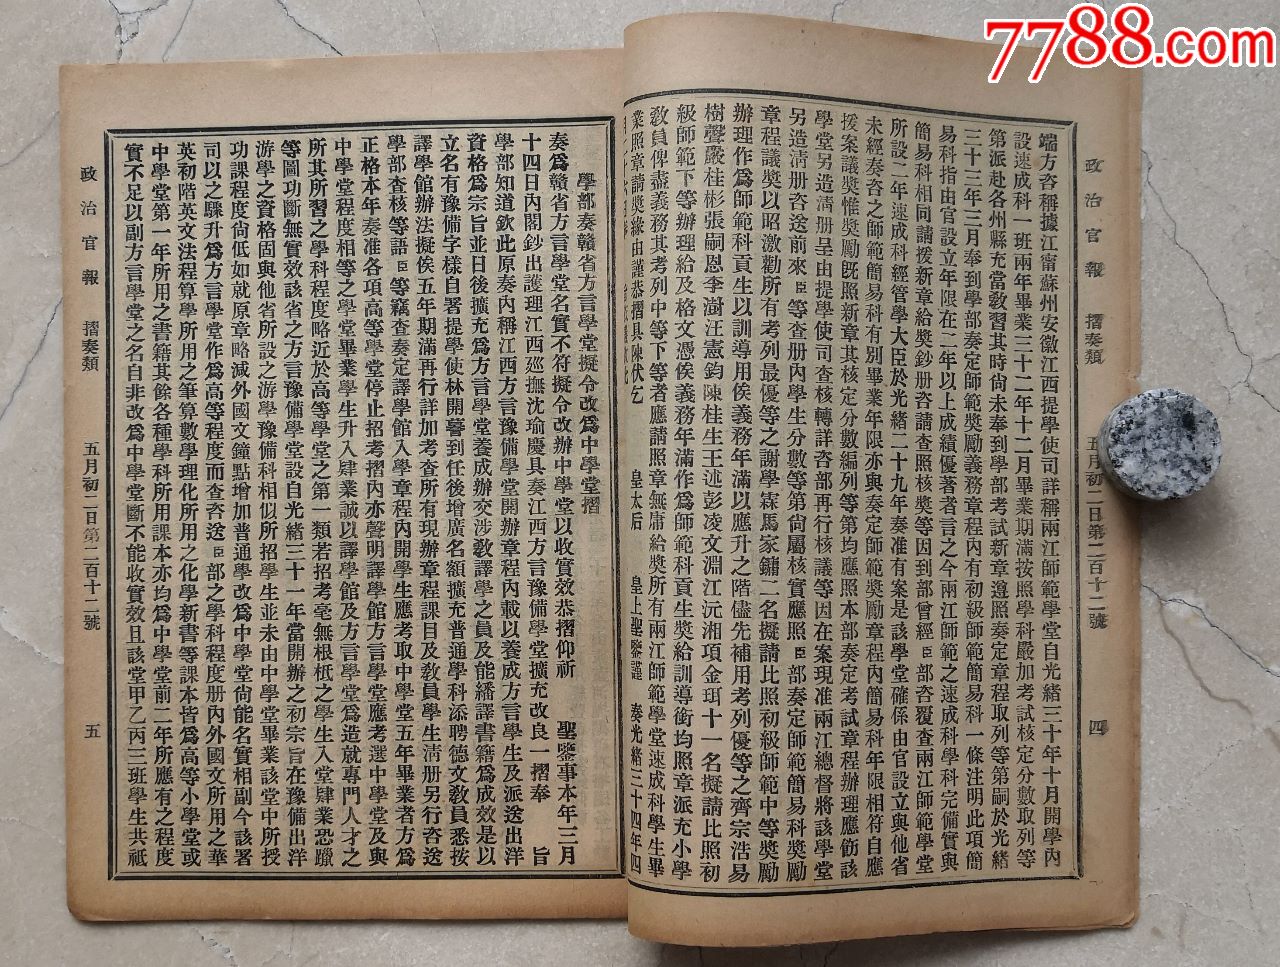 7788.com
政治官報 摺奏類 五月初二日第二百十二號 四
端方咨稱據江甯蘇州安徽江西提學使司詳稱兩江師範學堂自光緒三十年十月開學內
設速成科一班兩年畢業三十二年十二月畢業期滿按照學科嚴加考試核定分數取列等
第派赴各州縣充當教習其時尚未奉到學部考試新章遵照奏定章程取列等第嗣於光緒
三十三年三月奉到學部奏定師範獎勵義務章程內有初級師範簡易科一條注明此項簡
易科指由官設立年限在二年以上成績優著者言之今兩江師範之速成科學科完備實與
簡易科相同請援新章給獎鈔册咨請查照核獎等因到部曾經臣部咨覆查兩江師範學堂
所設二年速成科經管學大臣於光緒二十九年奏准有案是該學堂確係由官設立與他省
未經奏咨之師範簡易科有別畢業年限亦與奏定師範獎勵章程內簡易科年限相符自應
援案議獎惟獎勵既照新章其核定分數編列等第均應照本部奏定考試章程辦理應飭該
學堂另造清册呈由提學使司查核轉詳咨部再行核議等因在案現准兩江總督將該學堂
另造清册咨送前來臣等查册內學生分數等第尚屬核實應照臣部奏定師範簡易科獎勵
章程議獎以昭激勸所有考列最優等之謝學霖馬家鏞二名擬請比照初級師範中等獎勵
辦理作爲師範科貢生以訓導用俟義務年滿以應升之階儘先補用考列優等之齊宗浩易
樹聲嚴桂彬張嗣恩李澍汪憲鈞陳桂生王述彭凌文淵江沅湘項金珥十一名擬請比照初
級師範下等辦理給及格文憑俟義務年滿作爲師範科貢生獎給訓導銜均照章派充小學
教員俾盡義務其考列中等下等者應請照章無庸給獎所有兩江師範學堂速成科學生畢
業照章請獎緣由謹恭摺具陳伏乞 皇太后 皇上聖鑒謹 奏光緒三十四年四
學部奏贛省方言學堂擬令改爲中學堂摺
奏爲贛省方言學堂名實不符擬令改辦中學堂以收實效恭摺仰祈 聖鑒事本年三月
十四日內閣鈔出護理江西巡撫沈瑜慶具奏江西方言豫備學堂擴充改良一摺奉 旨
學部知道欽此原奏內稱江西方言豫備學堂開辦章程內載以養成方言學生及派送出洋
資格爲宗旨並日後擴充爲方言學堂養成辦交涉教譯學之員及能繙譯書籍爲成效是以
立名有豫備字樣自署提學使林開謩到任後增廣名額擴充普通學科添聘德文教員悉按
譯學館辦法擬俟五年期滿再行詳加考查所有現辦章程課目及教員學生清册另行咨送
學部查核等語臣等竊查奏定譯學館入學章程內開學生應考取中學堂五年畢業者方爲
正格本年奏准各項高等學堂停止招考摺內亦聲明譯學館方言學堂應考選中學堂及與
中學堂程度相等之學堂畢業學生升入肄業誠以譯學館及方言學堂爲造就專門人才之
所其所習之學科程度略近於高等學堂之第一類若招考毫無根柢之學生入堂肄業恐躐
等圖功斷無實效該省之方言豫備學堂設自光緒三十一年當開辦之初宗旨在豫備出洋
游學之資格固與他省所設之游學豫備科相似所招學生並未由中學堂畢業該堂中所授
功課程度尚低如就原章略減外國文鐘點增加普通學改爲中學堂尚能名實相副今該署
司以之驟升爲方言學堂作爲高等程度而查咨送臣部之學科程度册內外國文所用之華
英初階英文法程算學所用之筆算數學理化所用之化學新書等課本皆爲高等小學堂或
中學堂第一年所用之書籍其餘各種學科所用課本亦均爲中學堂前二年所應有之程度
實不足以副方言學堂之名自非改爲中學堂斷不能收實效且該堂甲乙丙三班學生共祗
政治官報 摺奏類 五月初二日第二百十二號 五